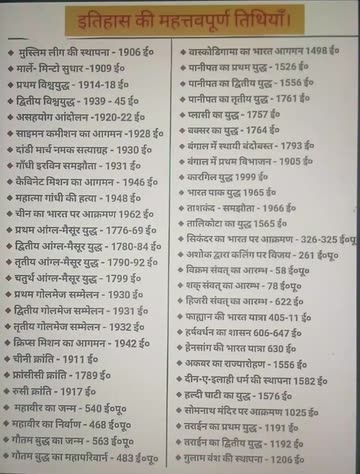 इतिहास की महत्तवपूर्ण तिथियाँ।
❖ मुस्लिम लीग की स्थापना - 1906 ई०
❖ मार्ले- मिन्टो सुधार -1909 ई०
❖ प्रथम विश्वयुद्ध - 1914-18 ई०
❖ द्वितीय विश्वयुद्ध - 1939 - 45 ई०
❖ असहयोग आंदोलन -1920-22 ई०
❖ साइमन कमीशन का आगमन -1928 ई०
❖ दांडी मार्च नमक सत्याग्रह - 1930 ई०
❖ गाँधी इरविन समझौता - 1931 ई०
❖ कैबिनेट मिशन का आगमन - 1946 ई०
❖ महात्मा गांधी की हत्या - 1948 ई०
❖ चीन का भारत पर आक्रमण 1962 ई०
❖ प्रथम आंग्ल-मैसूर युद्ध - 1776-69 ई०
❖ द्वितीय आंग्ल-मैसूर युद्ध - 1780-84 ई०
❖ तृतीय आंग्ल-मैसूर युद्ध - 1790-92 ई०
❖ चतुर्थ आंग्ल-मैसूर युद्ध - 1799 ई०
❖ प्रथम गोलमेज सम्मेलन - 1930 ई०
❖ द्वितीय गोलमेज सम्मेलन - 1931 ई०
❖ तृतीय गोलमेज सम्मेलन - 1932 ई०
❖ क्रिप्स मिशन का आगमन - 1942 ई०
❖ चीनी क्रांति - 1911 ई०
❖ फ्रांसीसी क्रांति - 1789 ई०
❖ रुसी क्रांति - 1917 ई०
❖ महावीर का जन्म - 540 ई०पू०
❖ महावीर का निर्वाण - 468 ई०पू०
❖ गौतम बुद्ध का जन्म - 563 ई०पू०
❖ गौतम बुद्ध का महापरिवार्न - 483 ई०पू०
❖ वास्कोडिगामा का भारत आगमन 1498 ई०
❖ पानीपत का प्रथम युद्ध - 1526 ई०
❖ पानीपत का द्वितीय युद्ध - 1556 ई०
❖ पानीपत का तृतीय युद्ध - 1761 ई०
❖ प्लासी का युद्ध - 1757 ई०
❖ बक्सर का युद्ध - 1764 ई०
❖ बंगाल में स्थायी बंदोबस्त - 1793 ई०
❖ बंगाल में प्रथम विभाजन - 1905 ई०
❖ कारगिल युद्ध 1999 ई०
❖ भारत पाक युद्ध 1965 ई०
❖ ताशकंद - समझौता - 1966 ई०
❖ तालिकोटा का युद्ध 1565 ई०
❖ सिकंदर का भारत पर आक्रमण - 326-325 ई०पू
❖ अशोक द्वारा कलिंग पर विजय - 261 ई०पू०
❖ विक्रम संवत् का आरम्भ - 58 ई०पू०
❖ शक् संवत् का आरम्भ - 78 ई०पू०
❖ हिजरी संवत् का आरम्भ - 622 ई०
❖ फाह्यान की भारत यात्रा 405-11 ई०
❖ हर्षवर्धन का शासन 606-647 ई०
❖ हेनसांग की भारत यात्रा 630 ई०
❖ अकबर का राज्यारोहण - 1556 ई०
❖ दीन-ए-इलाही धर्म की स्थापना 1582 ई०
❖ हल्दी घाटी का युद्ध - 1576 ई०
❖ सोमनाथ मंदिर पर आक्रमण 1025 ई०
❖ तराईन का प्रथम युद्ध - 1191 ई०
❖ तराईन का द्वितीय युद्ध - 1192 ई०
❖ गुलाम वंश की स्थापना - 1206 ई०